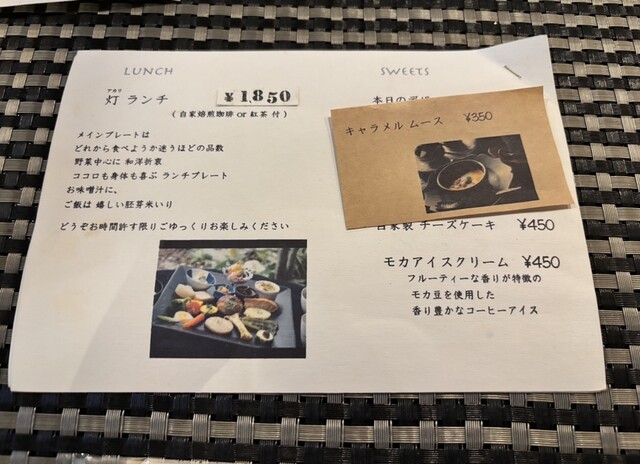 LUNCH
アカリ
灯 ランチ ¥1,850
(自家焙煎珈琲 or 紅茶 付)
メインプレートは
どれから食べようか迷うほどの品数
野菜中心に 和洋折衷
ココロも身体も喜ぶ ランチプレート
お味噌汁に、
ご飯は 嬉しい胚芽米いり
どうぞお時間許す限りごゆっくりお楽しみください
SWEETS
本日の
キャラメル ムース ¥350
自家製 チーズケーキ ¥450
モカアイスクリーム ¥450
フルーティーな香りが特徴の
モカ豆を使用した
香り豊かなコーヒーアイス